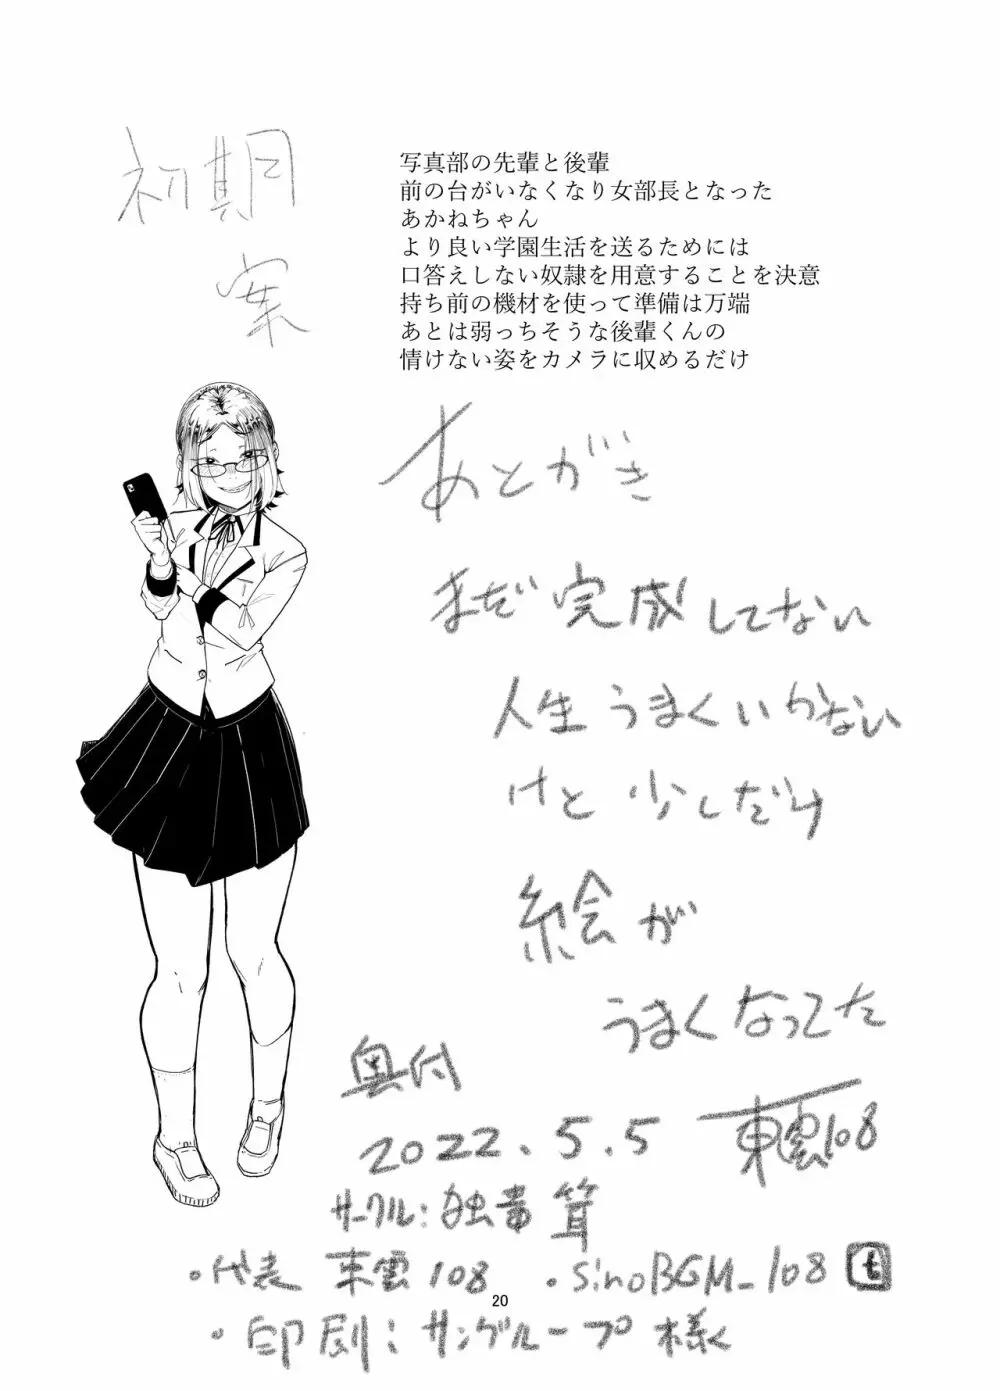 初期
案
写真部の先輩と後輩
前の台がいなくなり女部長となった
あかねちゃん
より良い学園生活を送るためには
口答えしない奴隷を用意することを決意
持ち前の機材を使って準備は万端
あとは弱っちそうな後輩くんの
情けない姿をカメラに収めるだけ
あとがき
まだ完成してない
人生うまくいかない
けど少しだけ
絵が
うまくなってた
奥付
2022.5.5 東雲108
サークル:独毒茸
・代表 東雲108 ・SinoBGM_108
・印刷:サングループ様
20